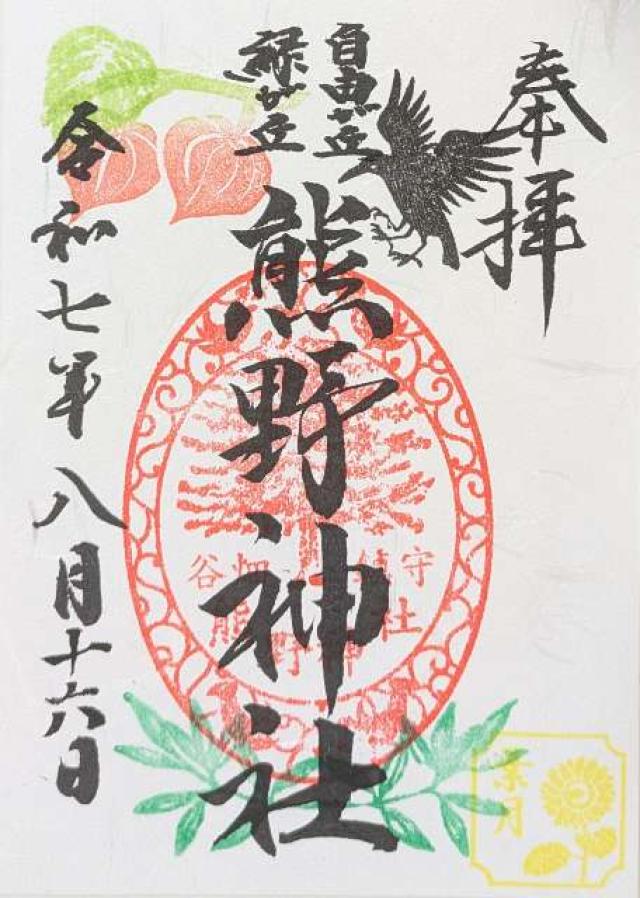 奉拝
自由が丘
緑が丘
熊野神社
令和七年八月十六日
谷畑 鎮守
熊野神社
葉月